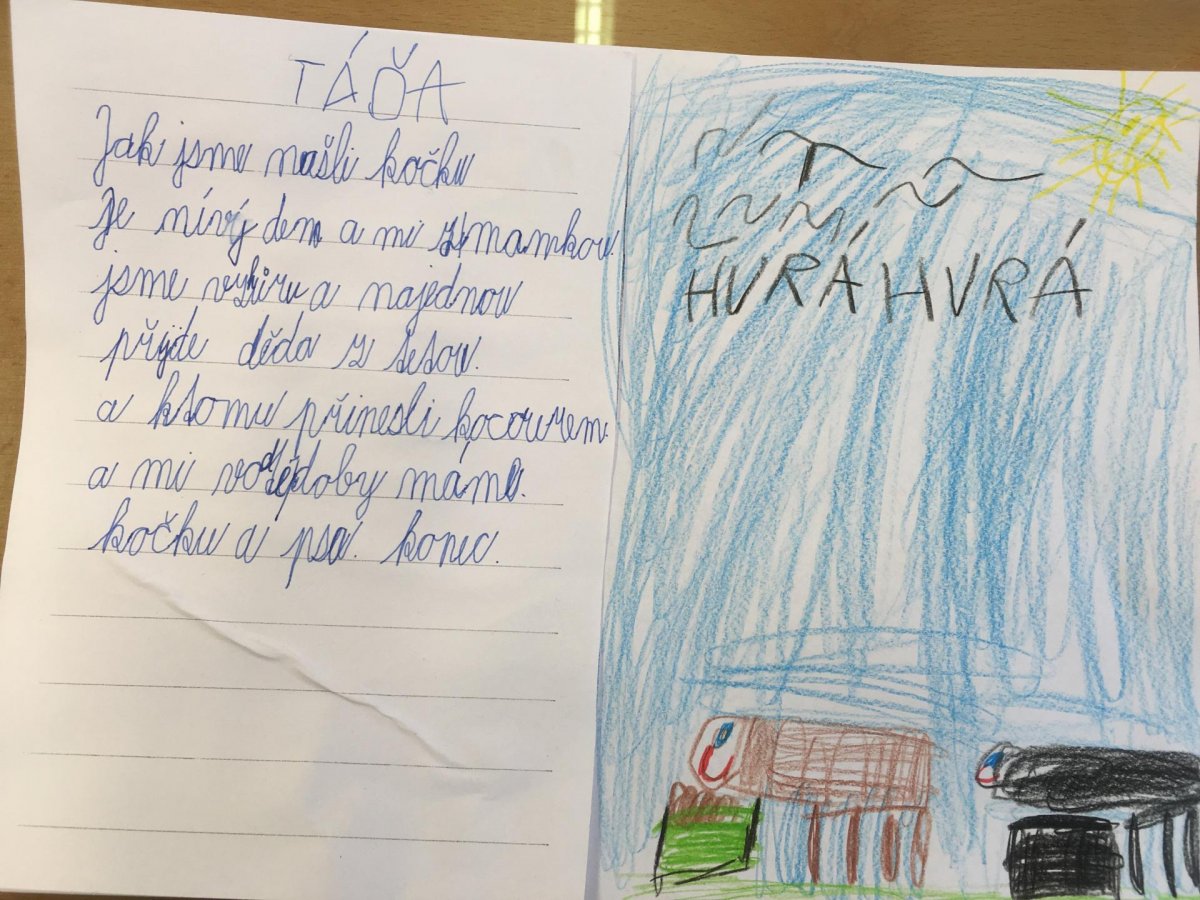 TÁĎA
Jak jsme našli kočku
Je nívý den a mi s mamkou.
jsme a najednou
přijde děda z tetou.
a ktomu přinesli kocourem.
a mi vod tédoby máme.
kočku a psa. konec.
HURÁ HURÁ